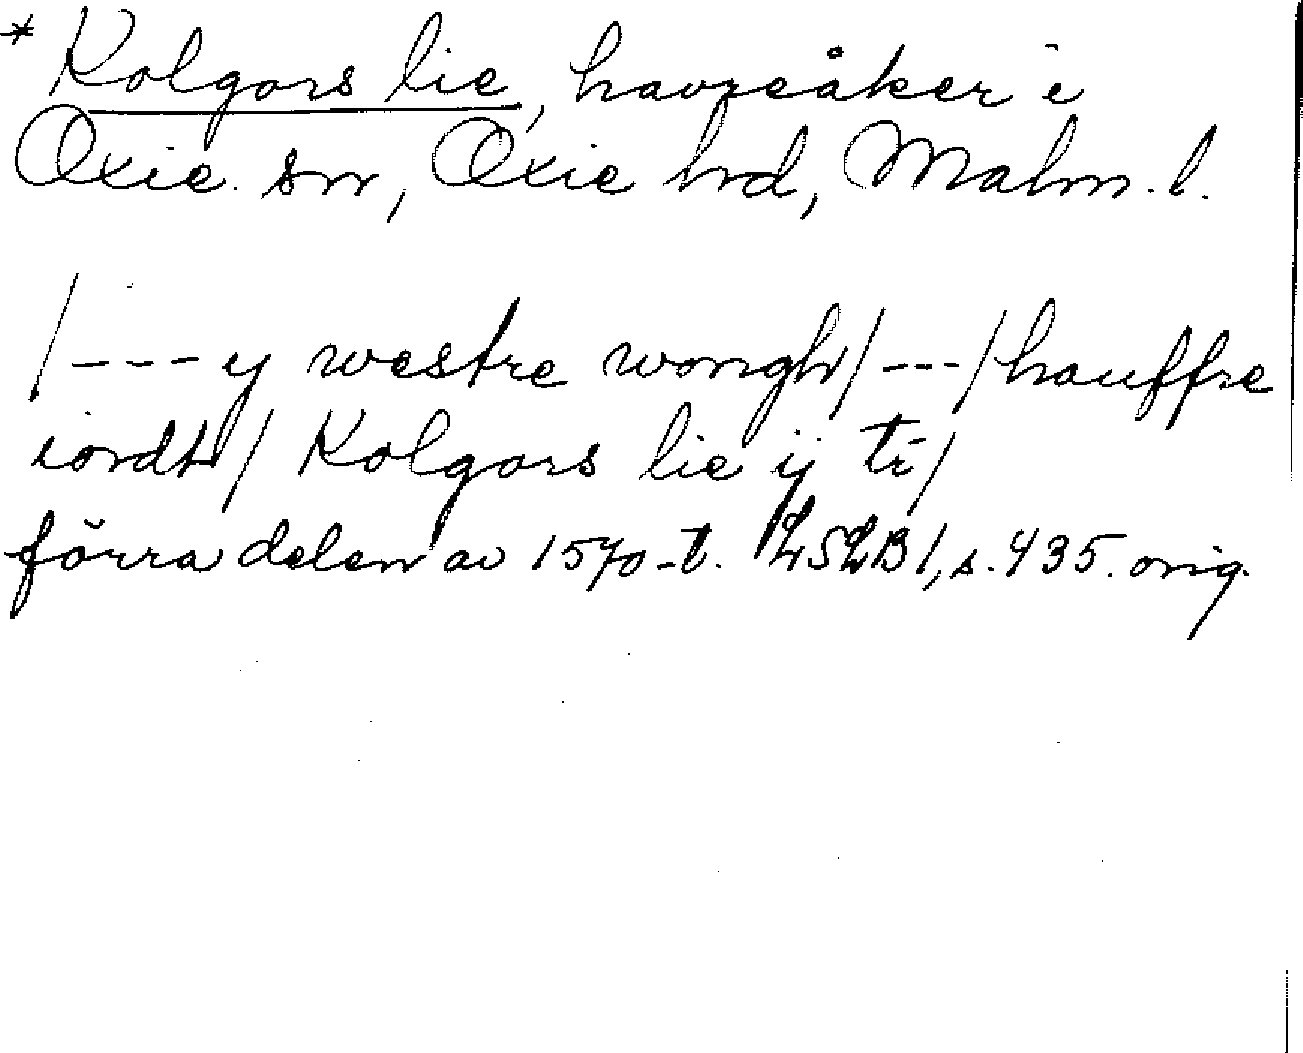 * Kolgors lie, havreåker i
Oxie sn, Oxie hd, Malm. l.
/--- y westre wongh/---/hauffre
iordt/ Kolgors lie ij ti/
förra delen av 1570-t. LSLB 1, s. 435. orig.